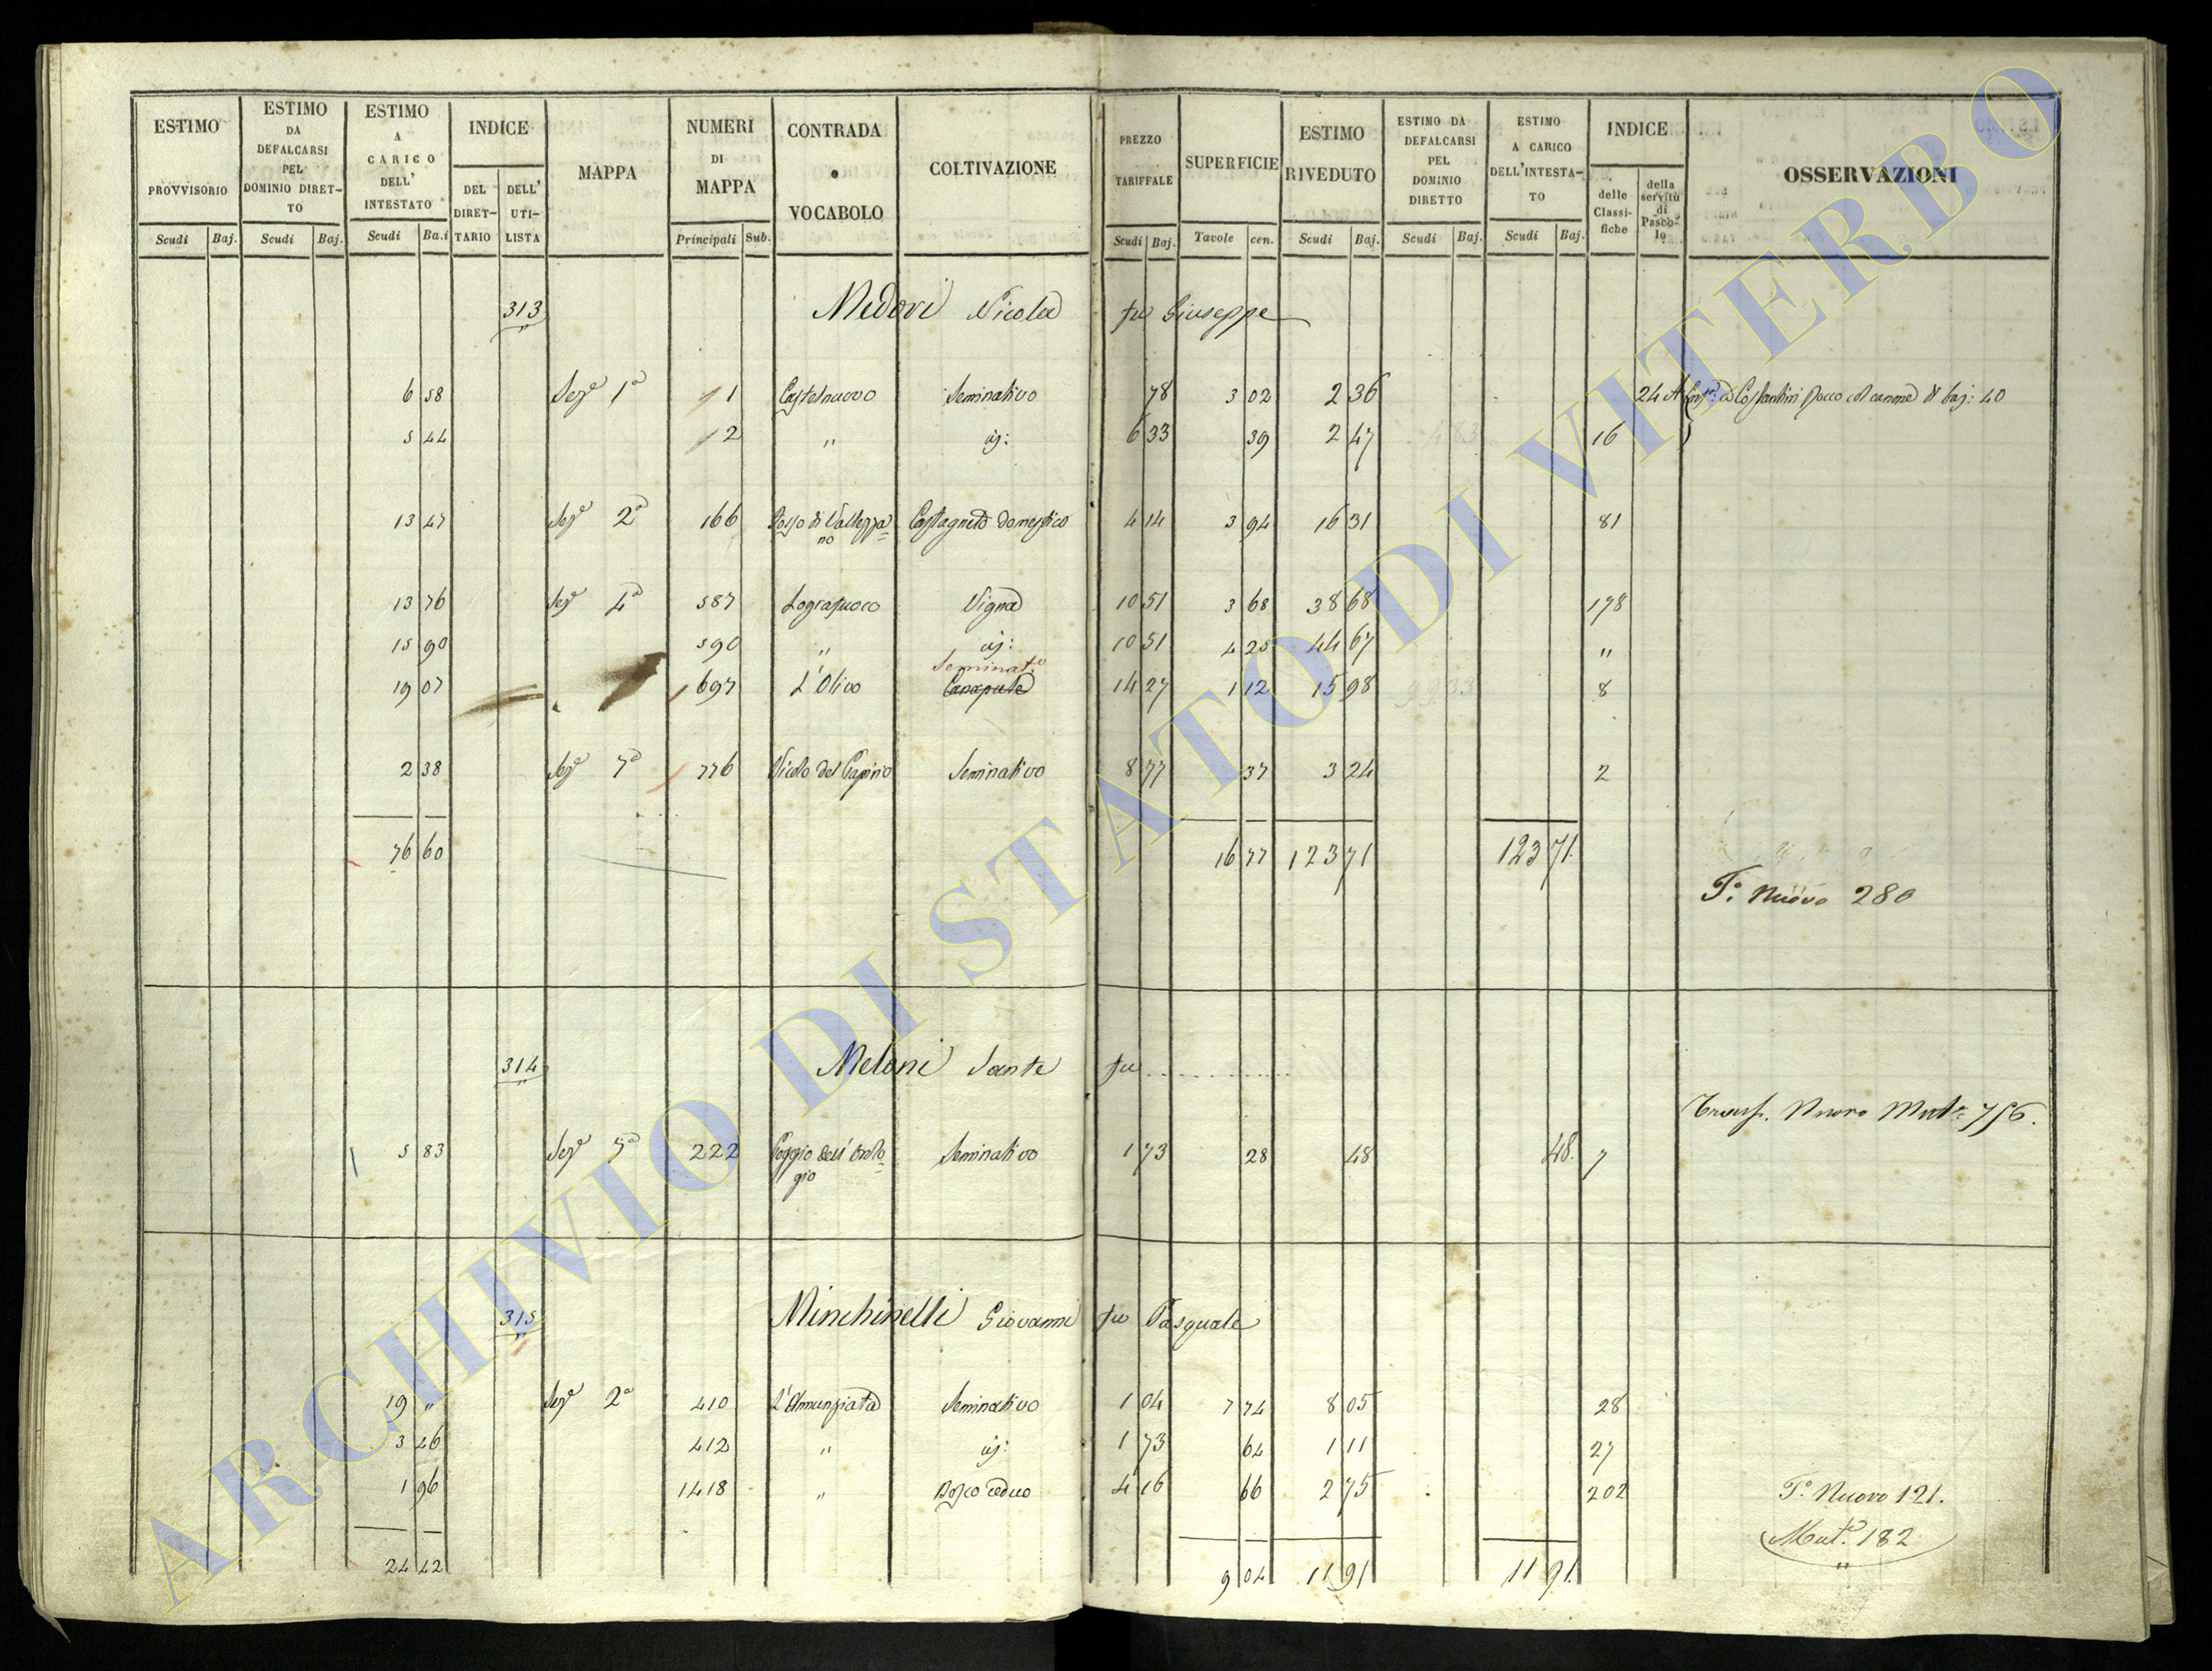 ESTIMO PROVVISORIO | ESTIMO DA DEFALCARSI PEL DOMINIO DIRET-TO | ESTIMO A CARICO DELL' INTESTATO | INDICE | MAPPA | NUMERI DI MAPPA | CONTRADA o VOCABOLO | COLTIVAZIONE | PREZZO TARIFFALE | SUPERFICIE | ESTIMO RIVEDUTO | ESTIMO DA DEFALCARSI PEL DOMINIO DIRETTO | ESTIMO A CARICO DELL'INTESTA-TO | INDICE | OSSERVAZIONI
DEL DIRET-TARIO | DELL' UTI-LISTA | delle Classi-fiche | della servitù di Pasco-lo
Scudi | Baj. | Scudi | Baj. | Scudi | Ba.i | Principali | Sub. | Scudi | Baj. | Tavole | cen. | Scudi | Baj. | Scudi | Baj. | Scudi | Baj.
313 Medori Nicola fu Giuseppe
6 58 | Seze 1a | 1 | Castelnuovo | Seminativo | 78 | 3 02 | 2 36 | 24 A | Costantini Rocco col canone di baj: 40
5 44 | 2 | " | id: | 6 33 | 39 | 2 47 | 16
13 47 | Seze 2a | 166 | Fosso di Vallezza=no | Castagneto domestico | 4 14 | 3 94 | 16 31 | 81
13 76 | Seze 4a | 587 | Lografuoco | Vigna | 10 51 | 3 68 | 38 68 | 178
15 90 | 590 | " | id: | 10 51 | 4 25 | 44 67 | "
Seminato
19 07 | 697 | L'Olivo | Canapule | 14 27 | 1 12 | 15 98 | 8
2 38 | Seze 7a | 776 | Vicolo del Capino | Seminativo | 8 77 | 37 | 3 24 | 2
76 60 | 16 77 | 123 71 | 123 71.
To. Nuovo 280
314 Meloni Sante fu . . . . . . . . . . .
Trasp. Nuovo Mut.e 756.
5 83 | Seze 5a | 222 | Poggio dell'Orolo=gio | Seminativo | 1 73 | 28 | 48 | 48. | 7
315 Minchinelli Giovanni fu Pasquale
19 " | Seze 2a | 410 | L'Annunziata | Seminativo | 1 04 | 7 74 | 8 05 | 28
3 46 | 412 | " | id: | 1 73 | 64 | 1 11 | 27
1 96 | 1418 | " | Bosco ceduo | 4 16 | 66 | 2 75 | 202
To. Nuovo 121.
Mut.e 182
24 42 | 9 04 | 11 91 | 11 91.
ARCHIVIO DI STATO DI VITERBO